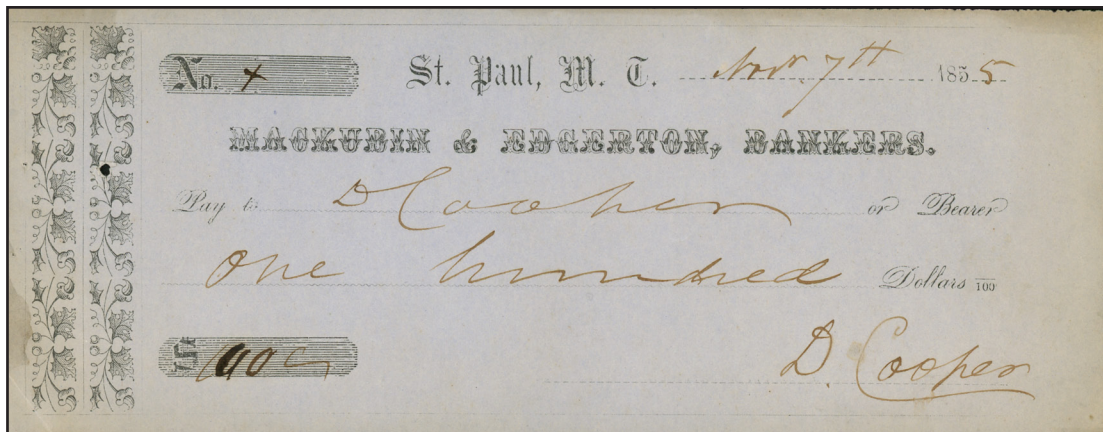 No. 4 St. Paul, M. T. Nov. 7th 1855
MACKUBIN & EDGERTON, BANKERS.
Pay to D Cooper or Bearer
One hundred Dollars /100
$ 100
D. Cooper